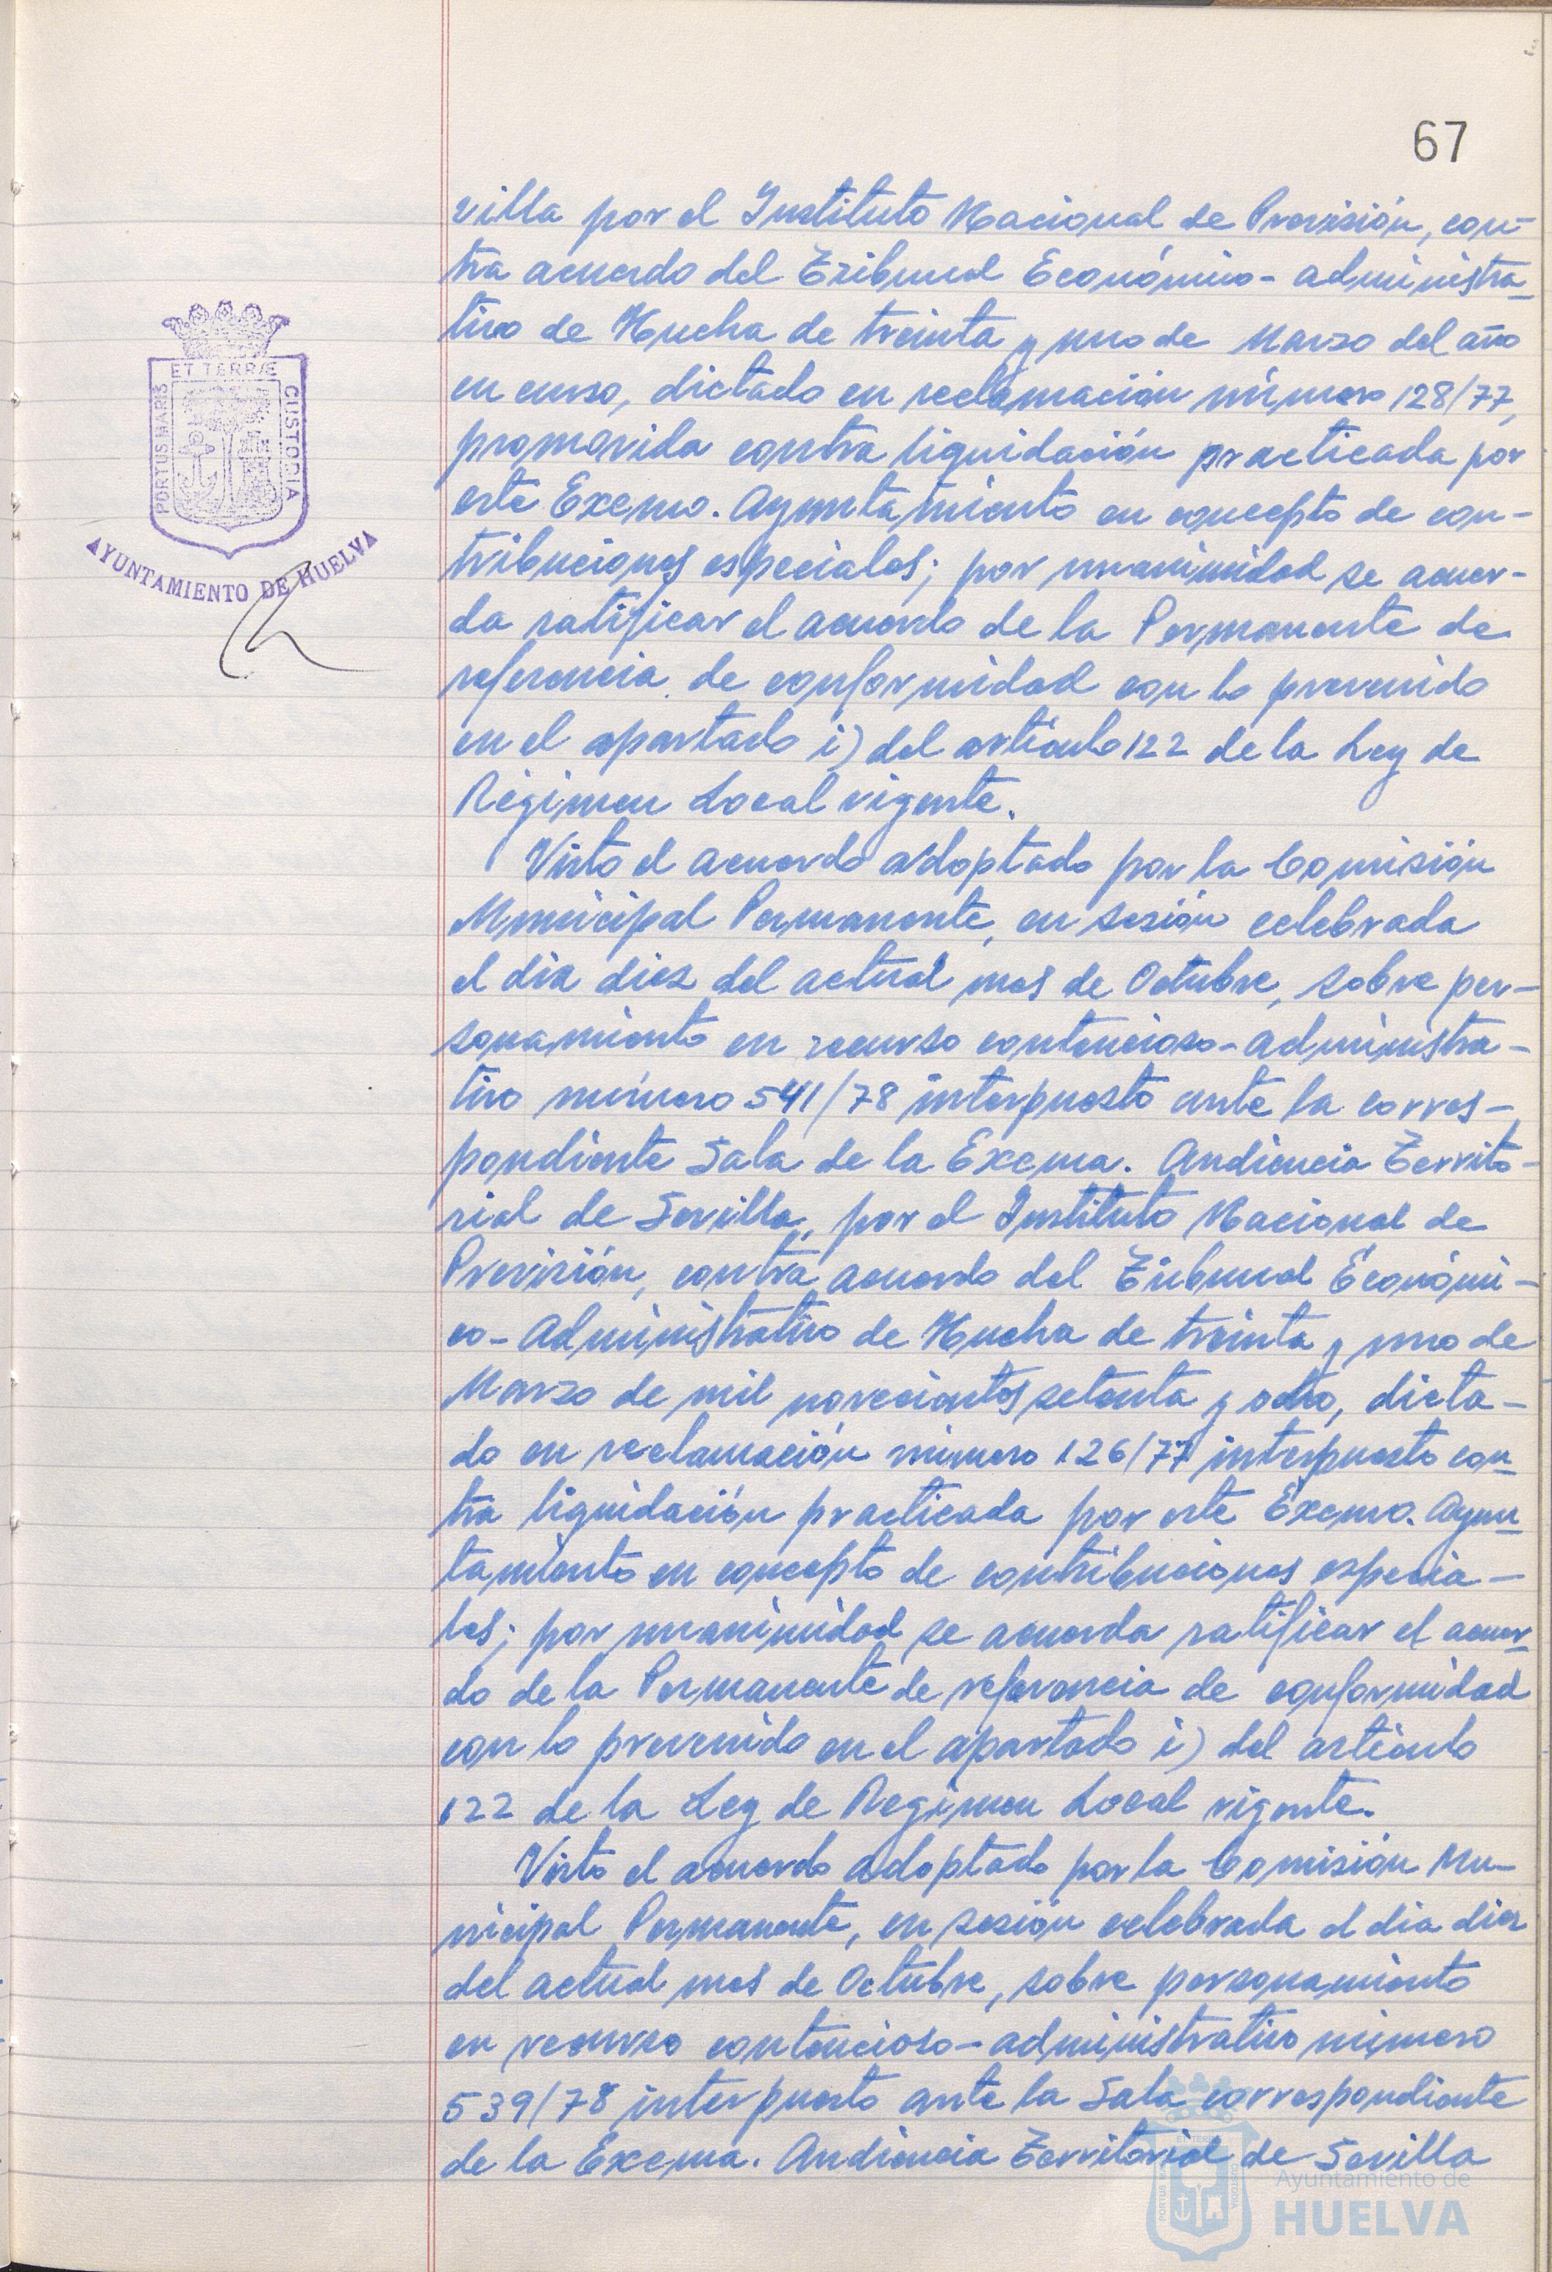 67
villa por el Instituto Nacional de Previsión, con-
tra acuerdo del Tribunal Económico-administra-
tivo de Huelva de treinta y uno de Marzo del año
en curso, dictado en reclamación número 128/77,
promovida contra liquidación practicada por
este Excmo. Ayuntamiento en concepto de con-
tribuciones especiales; por unanimidad se acuer-
da ratificar el acuerdo de la Permanente de
referencia de conformidad con lo prevenido
en el apartado i) del artículo 122 de la Ley de
Régimen Local vigente.
Visto el acuerdo adoptado por la Comisión
Municipal Permanente, en sesión celebrada
el dia diez del actual mes de Octubre, sobre per-
sonamiento en recurso contencioso-administra-
tivo número 541/78 interpuesto ante la corres-
pondiente Sala de la Excma. Audiencia Territo-
rial de Sevilla, por el Instituto Nacional de
Previsión, contra acuerdo del Tribunal Económi-
co-Administrativo de Huelva de treinta y uno de
Marzo de mil novecientos setenta y ocho, dicta-
do en reclamación número 126/77 interpuesto con-
tra liquidación practicada por este Excmo. Ayun-
tamiento en concepto de contribuciones especia-
les; por unanimidad se acuerda ratificar el acuer-
do de la Permanente de referencia de conformidad
con lo prevenido en el apartado i) del artículo
122 de la Ley de Regimen Local vigente.
Visto el acuerdo adoptado por la Comisión Mu-
nicipal Permanente, en sesión celebrada el dia diez
del actual mes de Octubre, sobre personamiento
en recurso contencioso-administrativo número
539/78 interpuesto ante la Sala correspondiente
de la Excma. Audiencia Territorial de Sevilla
PORTUS MARIS
ET TERRÆ
CUSTODIA
AYUNTAMIENTO DE HUELVA
Ayuntamiento de
HUELVA